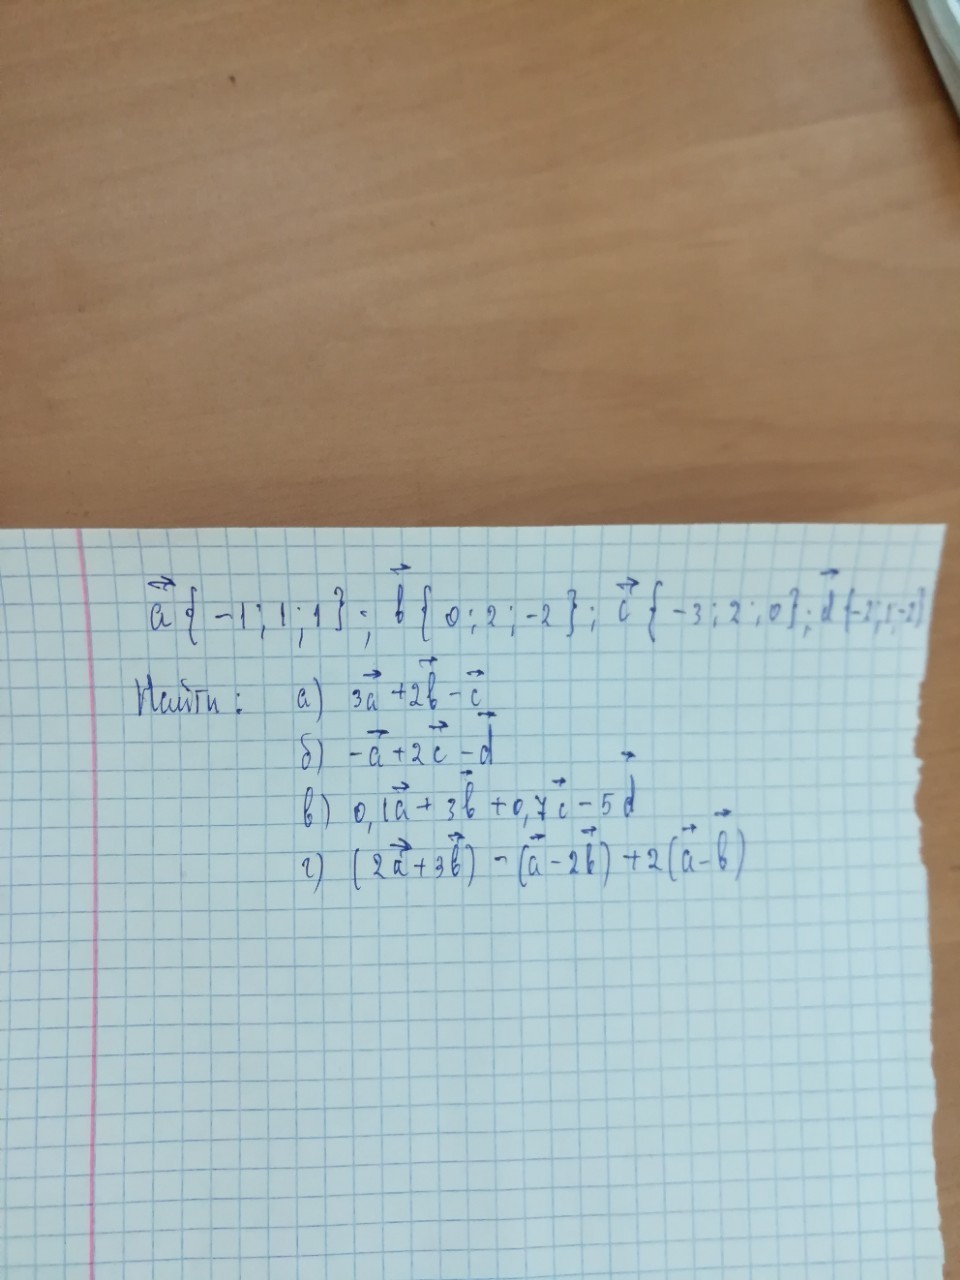 a⃗ {-1; 1; 1}; b⃗ {0; 2; -2}; c⃗ {-3; 2; 0}; d⃗ {-2; 1; -2}
Найти: а) 3a⃗ + 2b⃗ - c⃗
б) -a⃗ + 2c⃗ - d⃗
в) 0,1a⃗ + 3b⃗ + 0,7c⃗ - 5d⃗
г) (2a⃗ + 3b⃗) - (a⃗ - 2b⃗) + 2(a⃗ - b⃗)